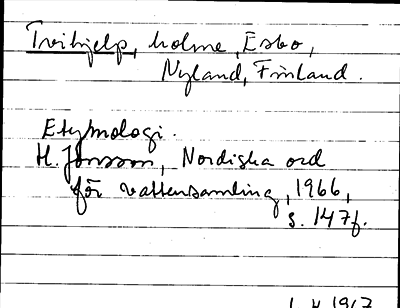 Treihjelp, holme, Esbo,
Nyland, Finland.
Etymologi.
H. Jonsson, Nordiska ord
för vattensamling, 1966,
s. 147f.